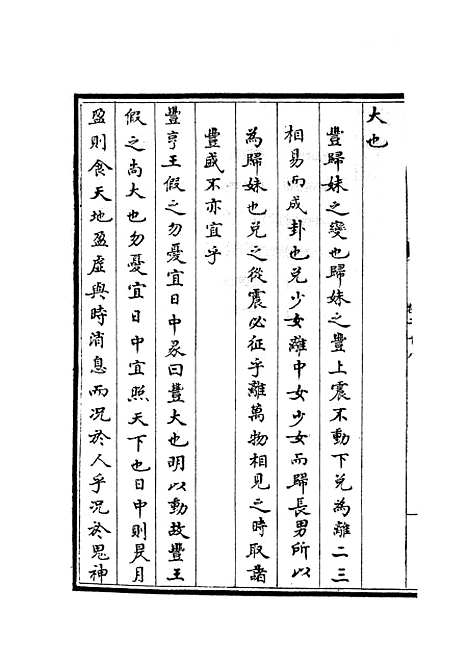 大也
豐歸妹之變也歸妹之豐上震不動下兌為離二三
相易而成卦也兌少女離中女少女而歸長男所以
為歸妹也兌之從震必征乎離萬物相見之時取諸
豐盛不亦宜乎
豐亨王假之勿憂宜日中彖曰豐大也明以動故豐王
假之尚大也勿憂宜日中宜照天下也日中則昃月
盈則食天地盈虛與時消息而況於人乎況於鬼神